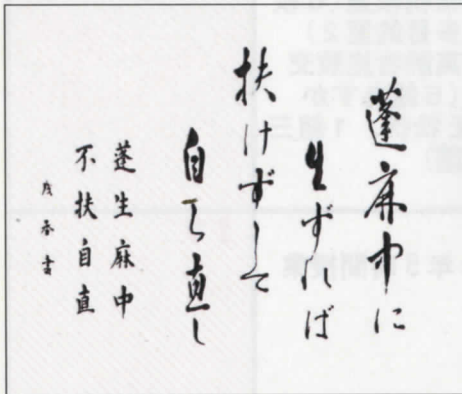 蓬麻中に
生ずれば
扶けずして
自ら直し
蓬生麻中
不扶自直